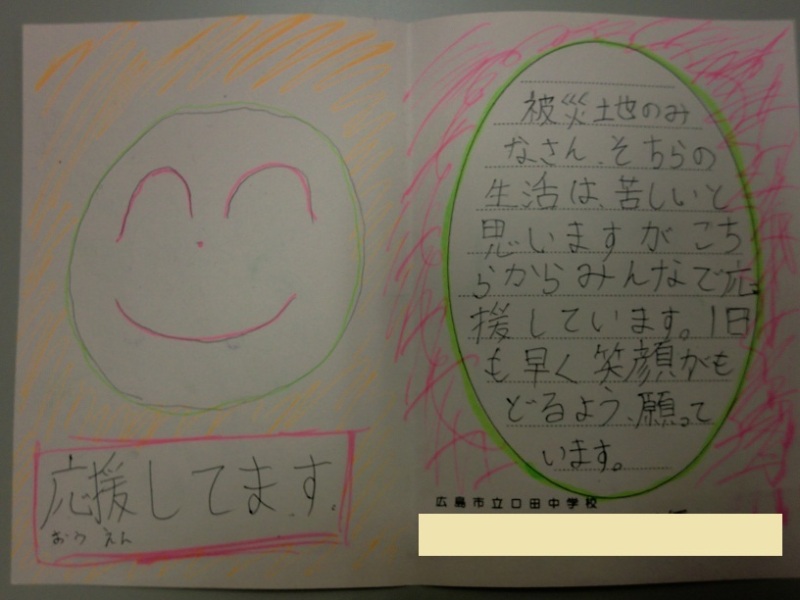 応援してます。
おうえん
被災地のみ
なさん、そちらの
生活は、苦しいと
思いますがこち
らからみんなで応
援しています。1日
も早く笑顔がも
どるよう、願って
います。
広島市立口田中学校